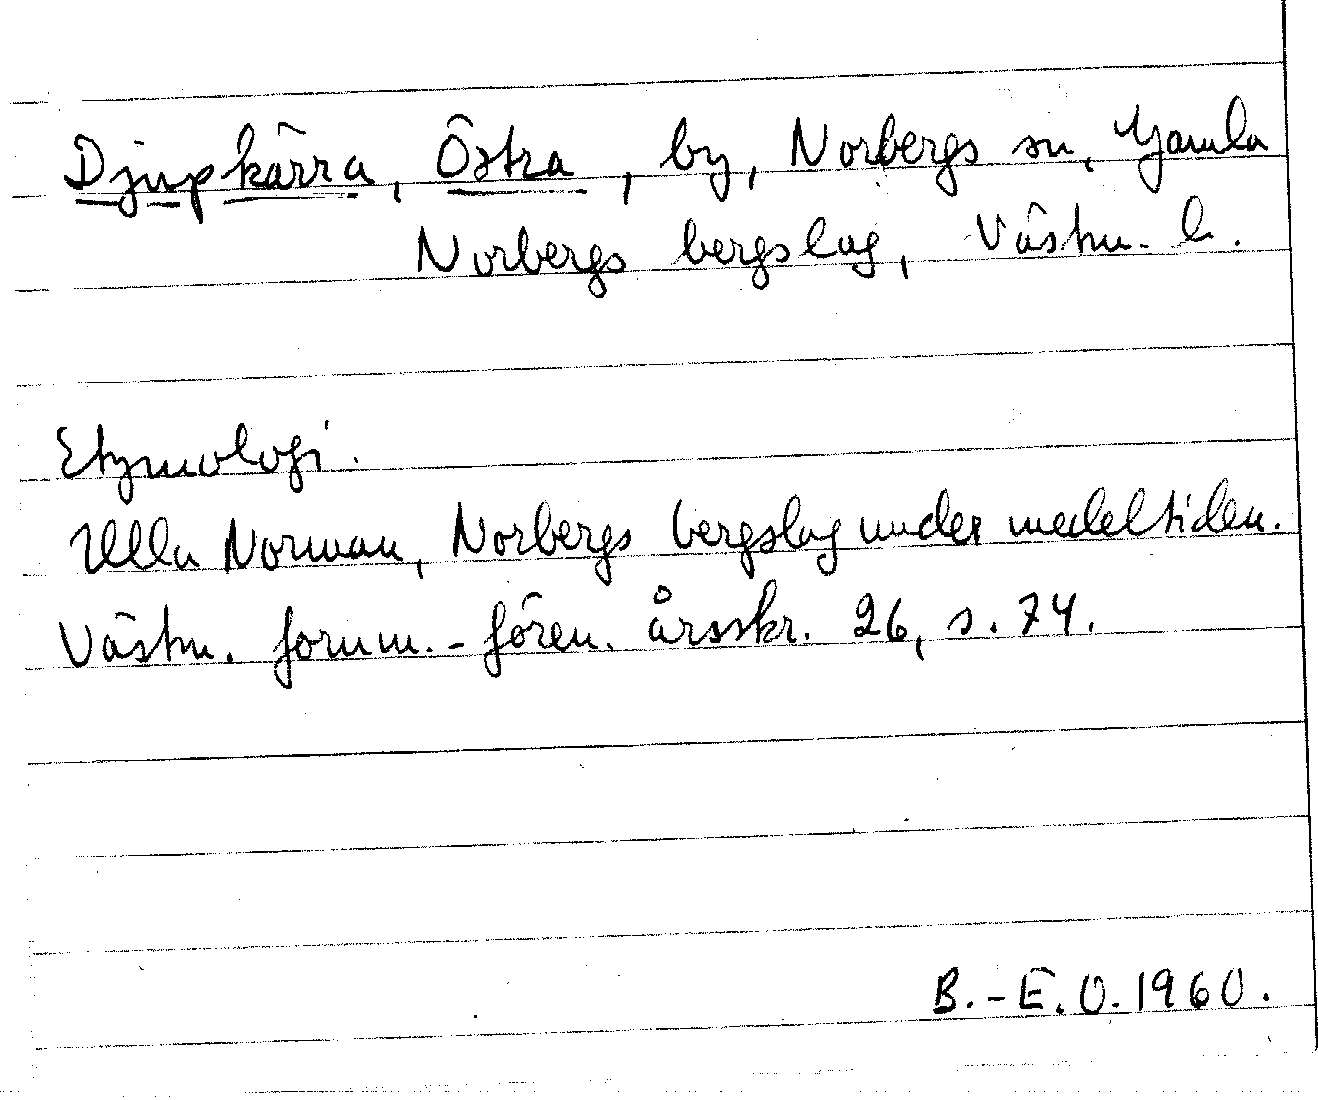 Djupkärra, Östra, by, Norbergs sn, Gamla
Norbergs bergslag, Västm. l.
Etymologi.
Ulla Norman, Norbergs bergslag under medeltiden.
Västm. fornm.-fören. årsskr. 26, s. 74.
B.-E.O. 1960.